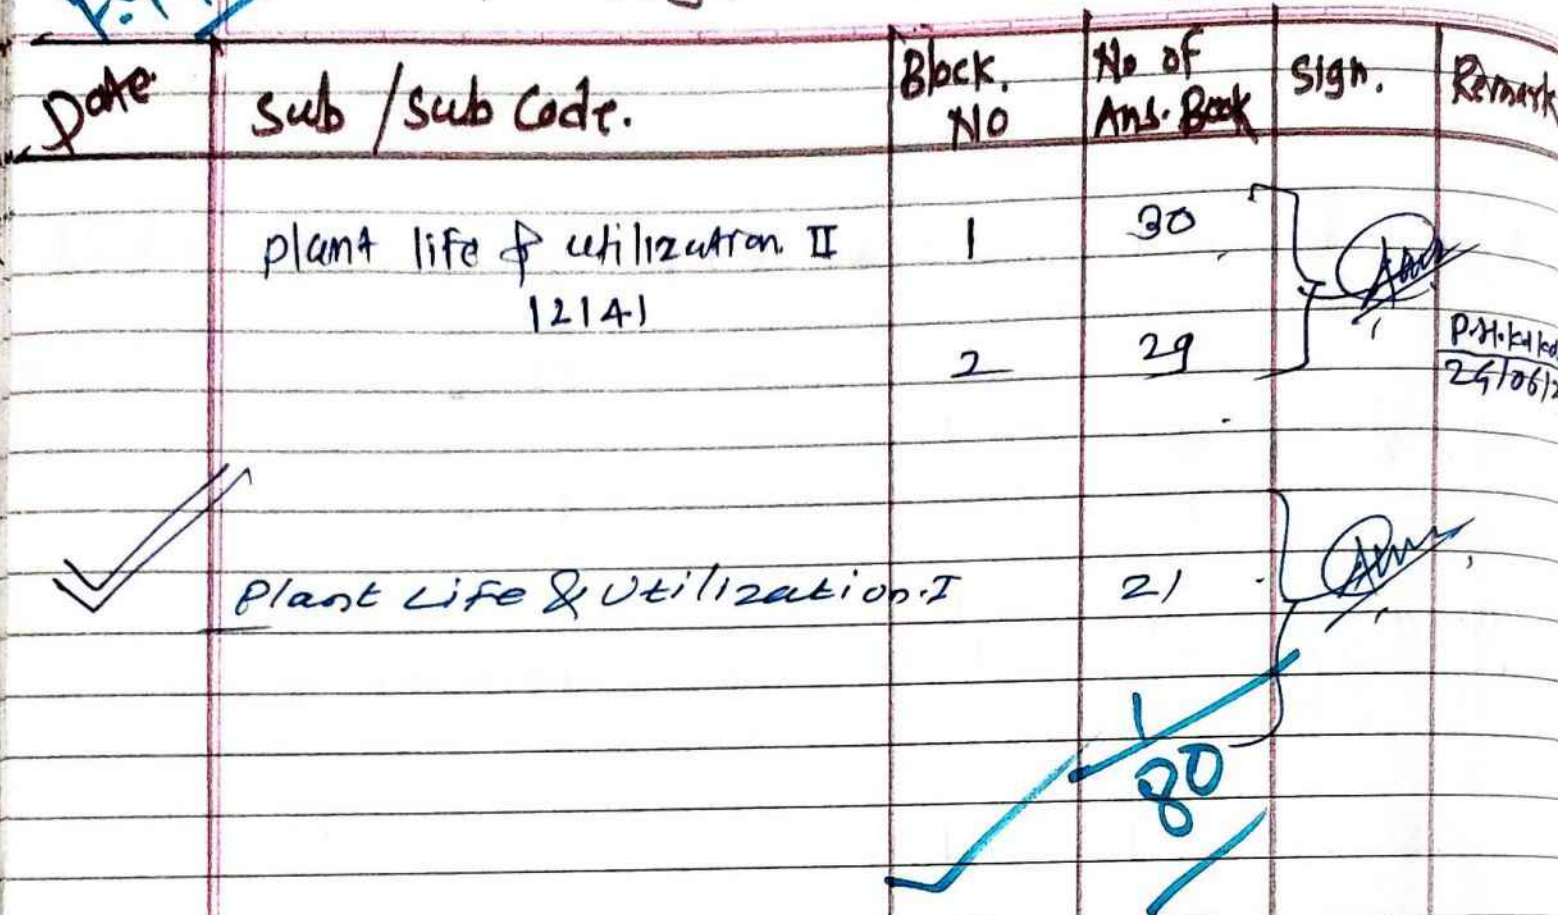 Date. Sub / Sub Code. Block. NO No of Ans. Book Sign. Remark
plant life & utilization II 1 30
12141
2 29
Plant Life & Utilization.I 21
1
80